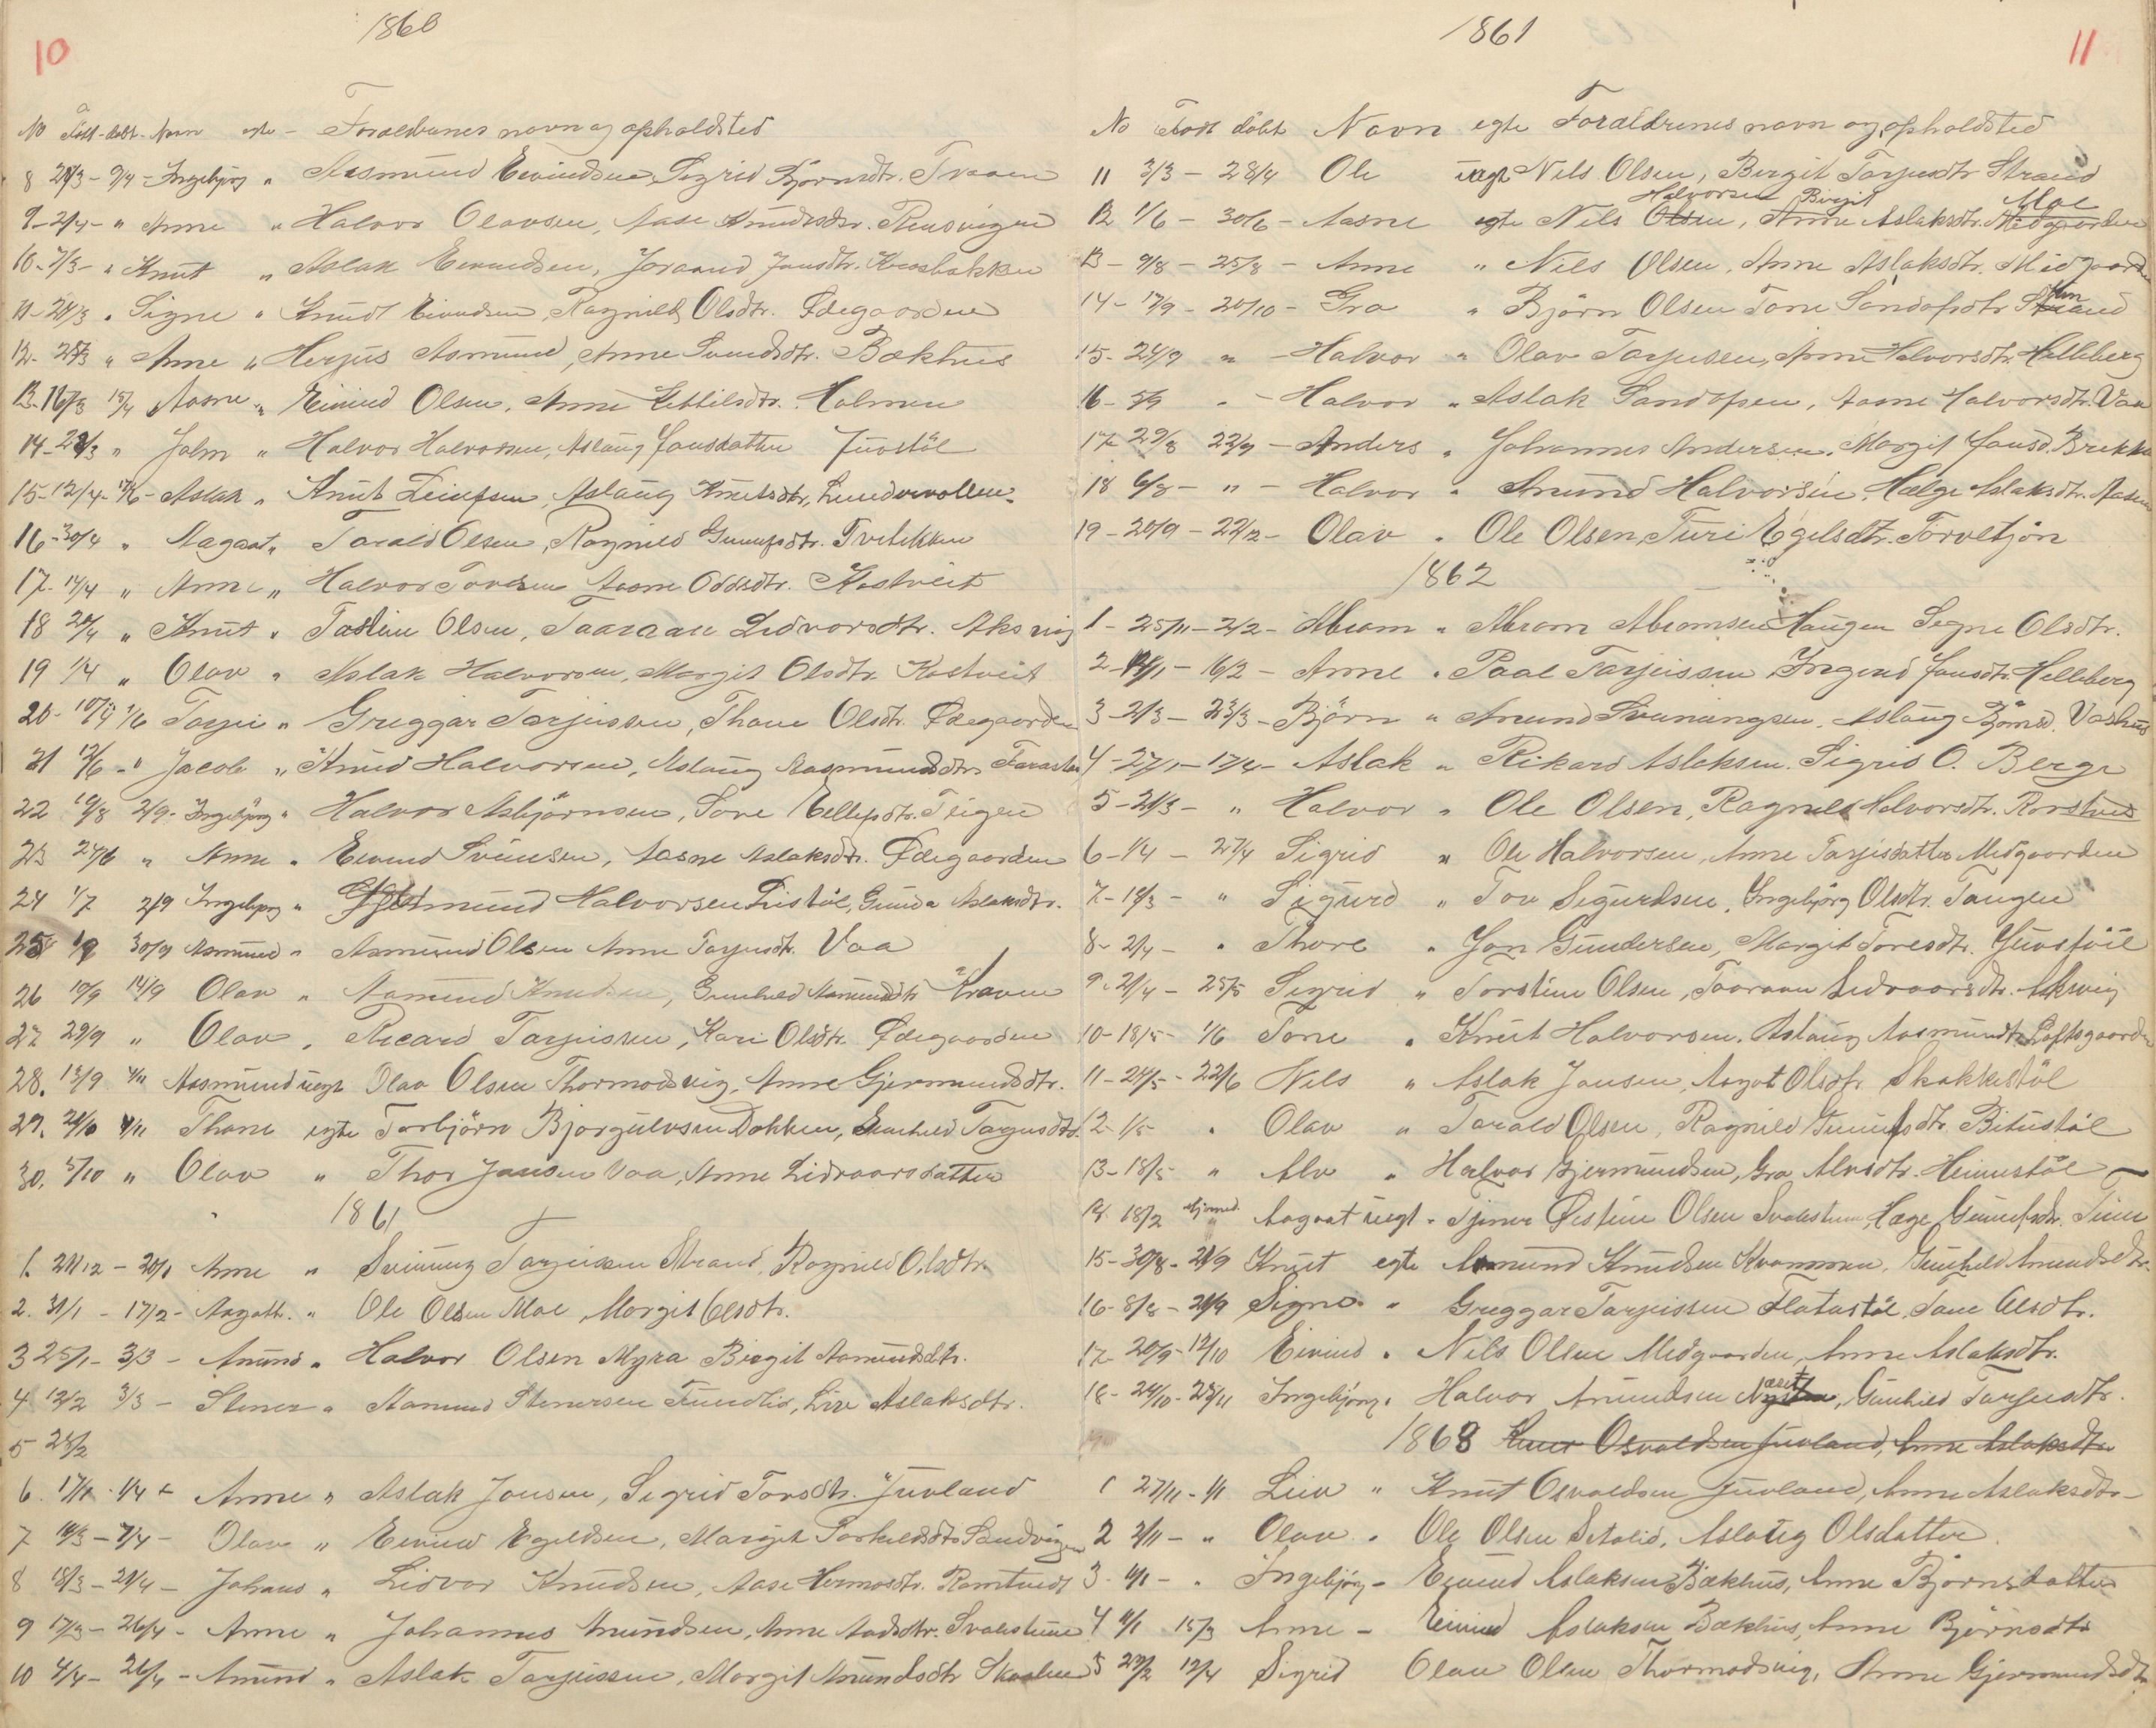 10
1860
No Födt - döbt - Navn egte - Foraeldrenes navn og opholdsted
8 28/3 - 9/4 - Ingebjörg " Aasmund Eivindsen, Sigrid Björnsdtr. Tvaaen
9 - 2/4 - " Anne " Halvor Olavsen, Aase Knudsdtr.
10 - 7/3 - " Knut " Aslak Eivindsen, Joraand Jonsdtr. Krosbakken
11 - 24/3 " Signe " Knudt Eivindsen, Ragnild Olsdtr. Ödegaarden
12 - 25/3 " Anne " Herjus Asmund, Anne Svendsdtr. Bækhus
13. 16/3 15/4 Aasne " Eivind Olsen, Anne Kettilsdtr. Holmen
14 - 28/3 " John " Halvor Halvorsen, Aslaug Jonsdatter Juvstöl
15 - 12/4 - Aslak " Knut Leiufsen, Aslaug Knutsdtr, Lundevollen.
16 - 30/4 " Aagaat " Tarald Olsen, Ragnild Gunufsdtr. Tveitekken
17. 14/4 " Anne " Halvor Tovesen Aasne Oddsdtr. Kostveit
18 20/4 " Knut " Tostein Olsen, Taaraan Lidvorsdtr. Aksvig
19 1/4 " Olav " Aslak Halvorsen, Margit Olsdtr. Kostveit
20 - 10/4 1/6 Tarjei " Greggar Tarjeissen, Thone Olsdtr. Ödegaarden
21 12/6 - " Jacob " Knud Halvorsen, Aslaug Aasmundsdtr.
22 10/8 2/9 - Ingebjörg " Halvor Asbjörnsen, Tone Ellefsdtr. Teigen
23 24/6 " Anne " Eivind Sveinsen, Aasne Aslaksdtr. Ödegaarden
24 1/7 2/9 Ingebjørg " Halvorsen Listöl, Gunda Aslaksdtr.
25 30/9 Asmund " Asmund Olsen Anne Tarjusdtr. Vaa
26 10/9 14/9 Olav " Aamund Knudsen, Gunhild Aamundsdtr Kraven
27 29/9 " Olav " Ricard Tarjeissen, Kari Olsdtr. Ödegaarden
28. 13/9 4/11 Aasmund uegt Olav Olsen Thormodsvig, Anne Gjermundsdtr.
29. 21/10 4/11 Thone egte Torbjörn Bjorgulvsen Dokken, Gunhild Tarjusdtr.
30. 5/10 " Olav " Thor Jonsen Vaa, Anne Lidvaarsdatter
1861
1. 21/12 - 20/1 Anne " Sveinung Tarjeissen Strand, Ragnild Olsdtr.
2. 31/1 - 17/2 - Aagath. " Ole Olsen Moe, Margit Olsdtr.
3 25/1 - 3/3 - Anund " Halvor Olsen Myra Birgit Aamundsdtr.
4 12/2 3/3 - Stener " Aamund Stenersen Fundlid, Liv Aslaksdtr.
5 28/2
6. 17/1 - 1/4 - Anne " Aslak Jonsen, Sigrid Torsdtr. Juvland
7 10/3 - 7/4 - Olav " Eivind Egildsen, Margit Torkildsdtr. Sandvigen
8 18/3 - 21/4 - Johans " Lidvor Knudsen, Aase Hermosdtr. Romtveit
9 17/3 - 26/4 - Anne " Johannes Anundsen, Anne Aadsdtr. Svalestuen
10 4/4 - 26/4 - Anund " Aslak Tarjeissen, Margit Anundsdtr
11
1861
No Födt döbt Navn egte Foraldrenes navn og opholdsted
11 3/3 - 28/4 Ole uegt Nils Olsen, Bergit Tarjusdtr Strand
Halvorsen Birgit Moe
12 1/6 - 30/6 - Aasne egte Nils Olsen, Anne Aslaksdtr. Midgaarden
13 - 9/8 - 25/8 - Anne " Nils Olsen, Anne Aslaksdtr. Midgaarden
14 - 17/9 - 20/10 - Gro " Björn Olsen Tone Sondofsdtr Strand
15 - 24/9 " - Halvor " Olav Tarjusen, Anne Halvorsdtr. Helleberg
16 - 5/9 " - Halvor " Aslak Sondofsen, Aasne Halvorsdtr. Vaa
17 - 29/8 22/9 - Anders " Johannes Andersen, Margit Jonsd. Brekke
18 6/8 - " - Halvor " Anund Halvorsen, Hælge Aslaksdtr. Aasen
19 - 20/9 - 22/12 - Olav " Ole Olsen, Turi Egilsdtr. Torvetjön
1862
1 - 25/11 - 2/2 - Abram " Abram Abramsen Haugen Segne Olsdtr.
2 - 14/1 - 16/2 - Anne " Paal Tarjeissen Ingerid Jonsdtr. Helleberg
3 - 2/3 - 23/3 - Björn " Anund Sveinungsen, Aslaug Björnsd. Vashus
4 - 27/1 - 17/4 - Aslak " Rikard Aslaksen, Sigrid O. Berge
5 - 21/3 - " Halvor " Ole Olsen, Ragnild Halvorsdtr.
6 - 1/4 - 27/4 Sigrid " Ole Halvorsen, Anne Tarjeisdatter Midgaarden
7 - 18/3 - " Sigurd " Tov Sigurdsen, Ingebjörg Olsdtr. Tangen
8 - 2/4 - " Thore " Jon Gundersen, Margit Toresdtr. Juvstöil
9 - 21/4 - 25/5 Sigrid " Torstein Olsen, Taaraan Lidvaarsdtr. Aksvig
10 - 18/5 - 1/6 Tone " Knut Halvorsen, Aslaug Aasmundtr. Loftsgaarden
11 - 24/5 - 22/6 Nils " Aslak Jonsen, Aagot Olsdtr Skakkestöl
12 - 1/5 " Olav " Tarald Olsen, Ragnild Gunufsdtr. Bitustöl
13 - 18/5 " Alv " Halvor Gjermundsen, Gro Alvsdtr. Heimestöl
14. 18/2 hjemmed. Aagaat uegt " Tjener Østein Olsen Svalestuen, Hæge Gunufsdtr.
15 - 30/8 - 21/9 Knut egte Amund Knudsen Kvammen, Gunhild Amundsdtr.
16 - 8/8 - 21/9 Signe " Greggar Tarjeissen Flatastöl, Tone Olsdtr.
17 - 20/9 - 12/10 Eivind " Nils Olsen Midgaarden, Anne Aslaksdtr.
18 - 24/10 - 23/11 Ingebjörg " Halvor Anundsen, Gunhild Tarjusdtr.
1863 Knut Osvaldsen Juvland, Anne Aslaksdtr.
1 27/11 - 1/1 Liv " Knut Osvaldsen Juvland, Anne Aslaksdtr -
2 2/11 - " Olav " Ole Olsen Setalid, Aslaug Olsdatter
3 - 4/1 - " Ingebjörg - Eivind Aslaksen Bækhus, Anne Björnsdatter
4 4/1 15/3 Anne - Eivind Aslaksen Bækhus, Anne Björnsdtr
5 22/2 12/4 Sigrid Olav Olsen Thormodsvig, Anne Gjermundsdtr.